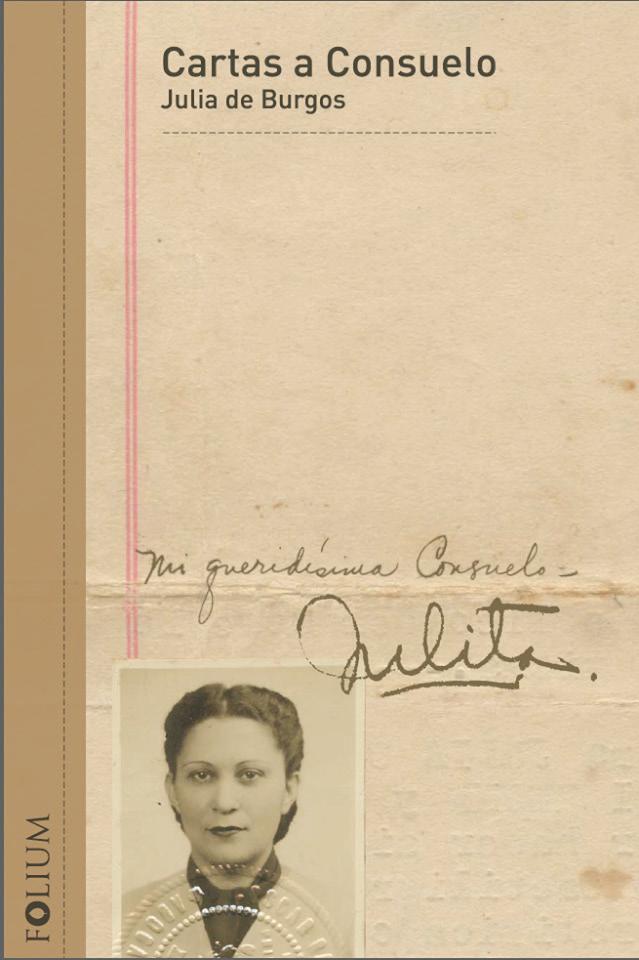 Cartas a Consuelo
Julia de Burgos
Mi queridísima Consuelo-
Julita.
FOLIUM